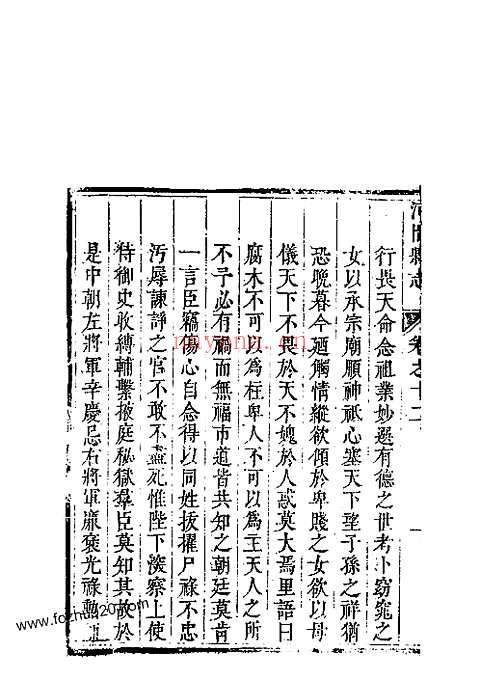 河間縣志 卷之十二 一
行畏天命念祖業妙選有德之世考卜窈窕之
女以承宗廟順神祇心塞天下望子孫之祥猶
恐晚暮今廼觸情縱欲傾於卑賤之女欲以母
儀天下不畏於天不媿於人惑莫大焉里語曰
腐木不可以為柱卑人不可以為主天人之所
不予必有禍而無福市道皆共知之朝廷莫肯
一言臣竊傷心自念得以同姓拔擢尸祿不忠
汚辱諫諍之官不敢不盡死惟陛下深察上使
侍御史收縛輔繫掖庭秘獄羣臣莫知其故於
是中朝左將軍辛慶忌右將軍廉褒光祿勳
www.fozhu920.com